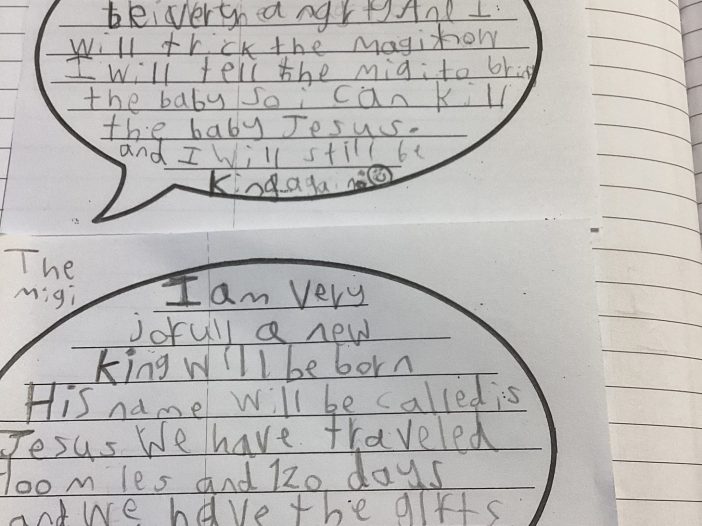 be i verty angrty And I
Will trick the magithon
I will tell the migi to bring
the baby so i can kill
the baby Jesus.
and I will still be
King aga in
The
migi
I am Very
jofull a new
King will be born
His name will be called is
Jesus. We have traveled
700 miles and 120 days
and We have the gifts